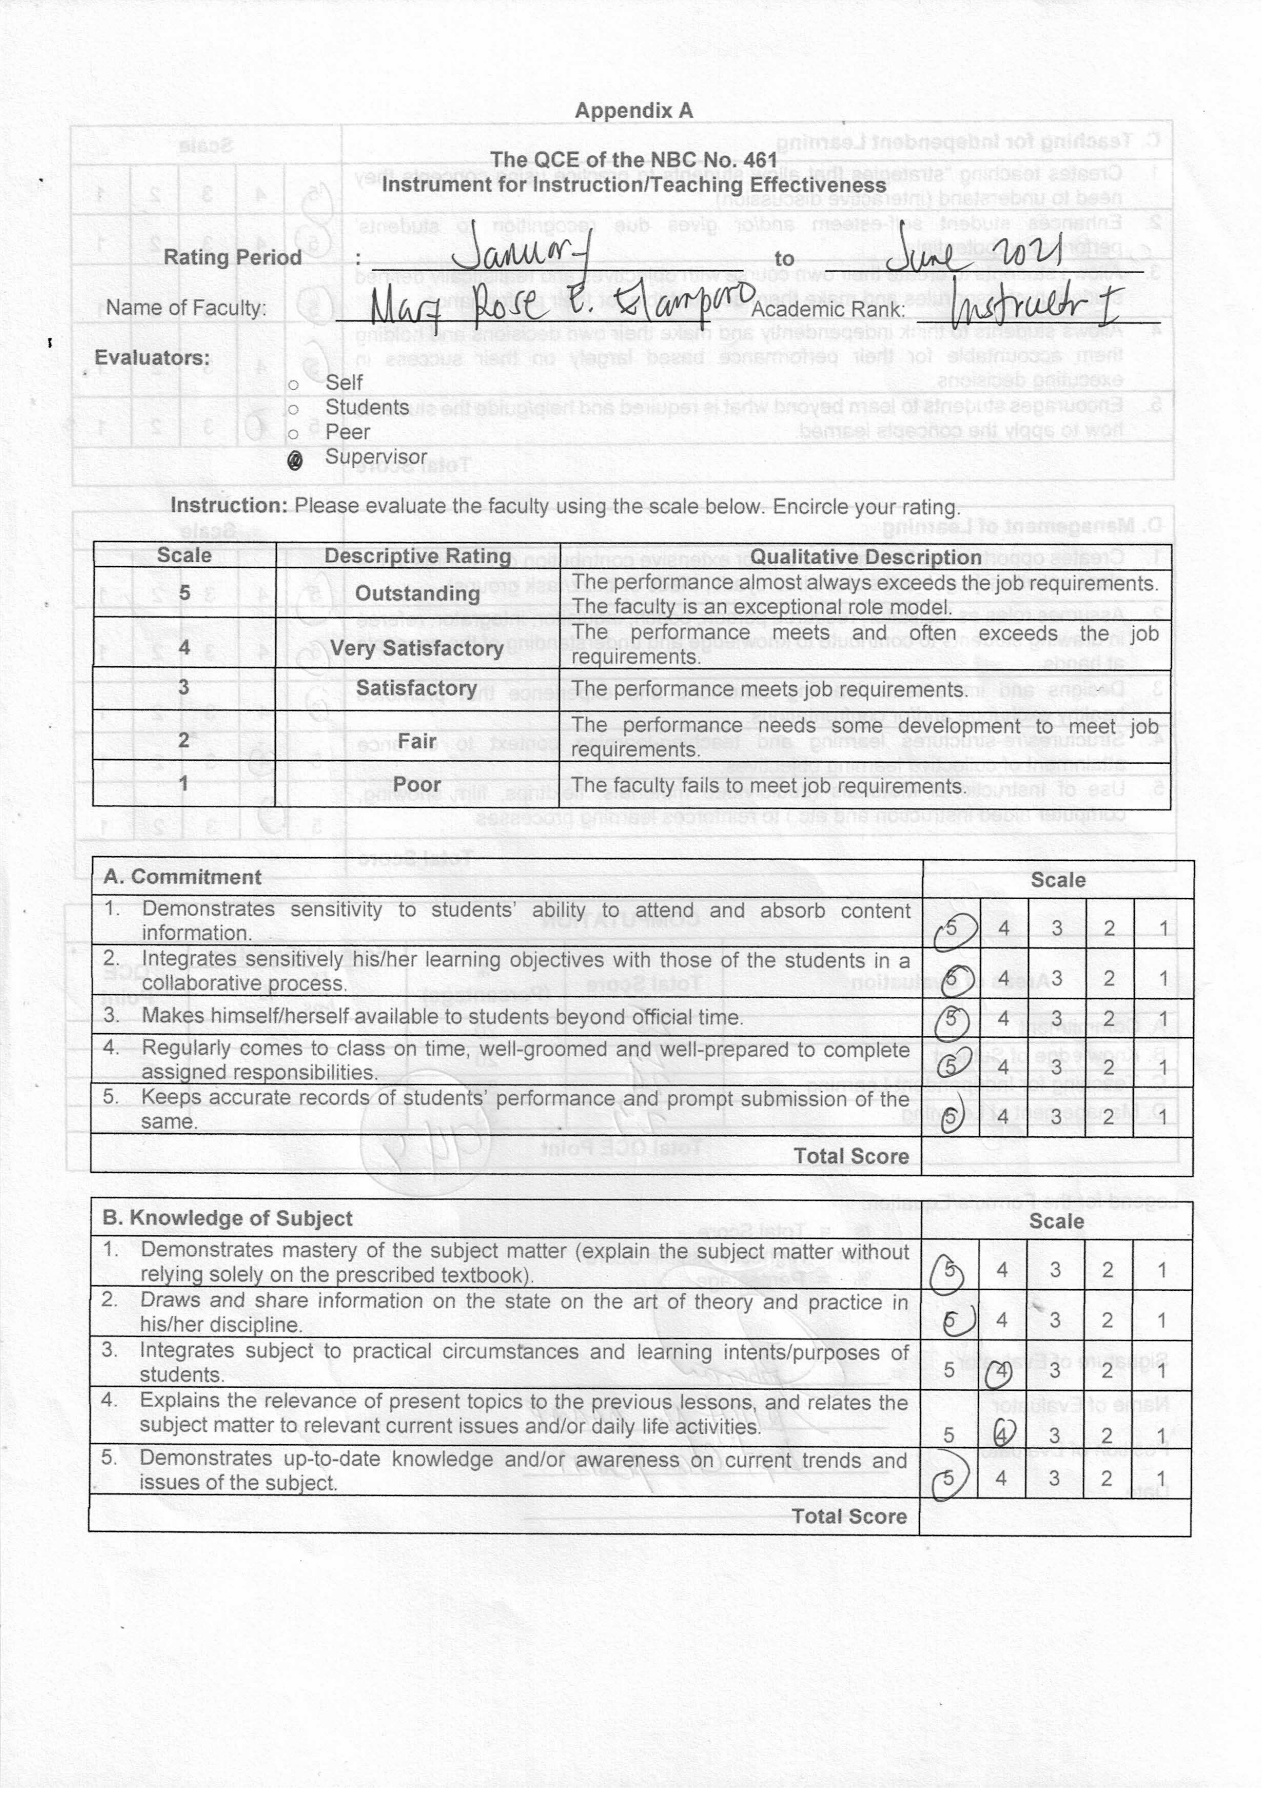 Appendix A
The QCE of the NBC No. 461
Instrument for Instruction/Teaching Effectiveness
Rating Period : January to June 2021
Name of Faculty: Mary Rose E. Academic Rank: Instructor I
Evaluators:
○ Self
○ Students
○ Peer
Supervisor
Instruction: Please evaluate the faculty using the scale below. Encircle your rating.
Scale Descriptive Rating Qualitative Description
5 Outstanding The performance almost always exceeds the job requirements.
The faculty is an exceptional role model.
4 Very Satisfactory The performance meets and often exceeds the job
requirements.
3 Satisfactory The performance meets job requirements.
2 Fair The performance needs some development to meet job
requirements.
1 Poor The faculty fails to meet job requirements.
A. Commitment Scale
1. Demonstrates sensitivity to students' ability to attend and absorb content
information. 5 4 3 2 1
2. Integrates sensitively his/her learning objectives with those of the students in a
collaborative process. 5 4 3 2 1
3. Makes himself/herself available to students beyond official time. 5 4 3 2 1
4. Regularly comes to class on time, well-groomed and well-prepared to complete
assigned responsibilities. 5 4 3 2 1
5. Keeps accurate records of students' performance and prompt submission of the
same. 5 4 3 2 1
Total Score
B. Knowledge of Subject Scale
1. Demonstrates mastery of the subject matter (explain the subject matter without
relying solely on the prescribed textbook). 5 4 3 2 1
2. Draws and share information on the state on the art of theory and practice in
his/her discipline. 5 4 3 2 1
3. Integrates subject to practical circumstances and learning intents/purposes of
students. 5 4 3 2 1
4. Explains the relevance of present topics to the previous lessons, and relates the
subject matter to relevant current issues and/or daily life activities. 5 4 3 2 1
5. Demonstrates up-to-date knowledge and/or awareness on current trends and
issues of the subject. 5 4 3 2 1
Total Score